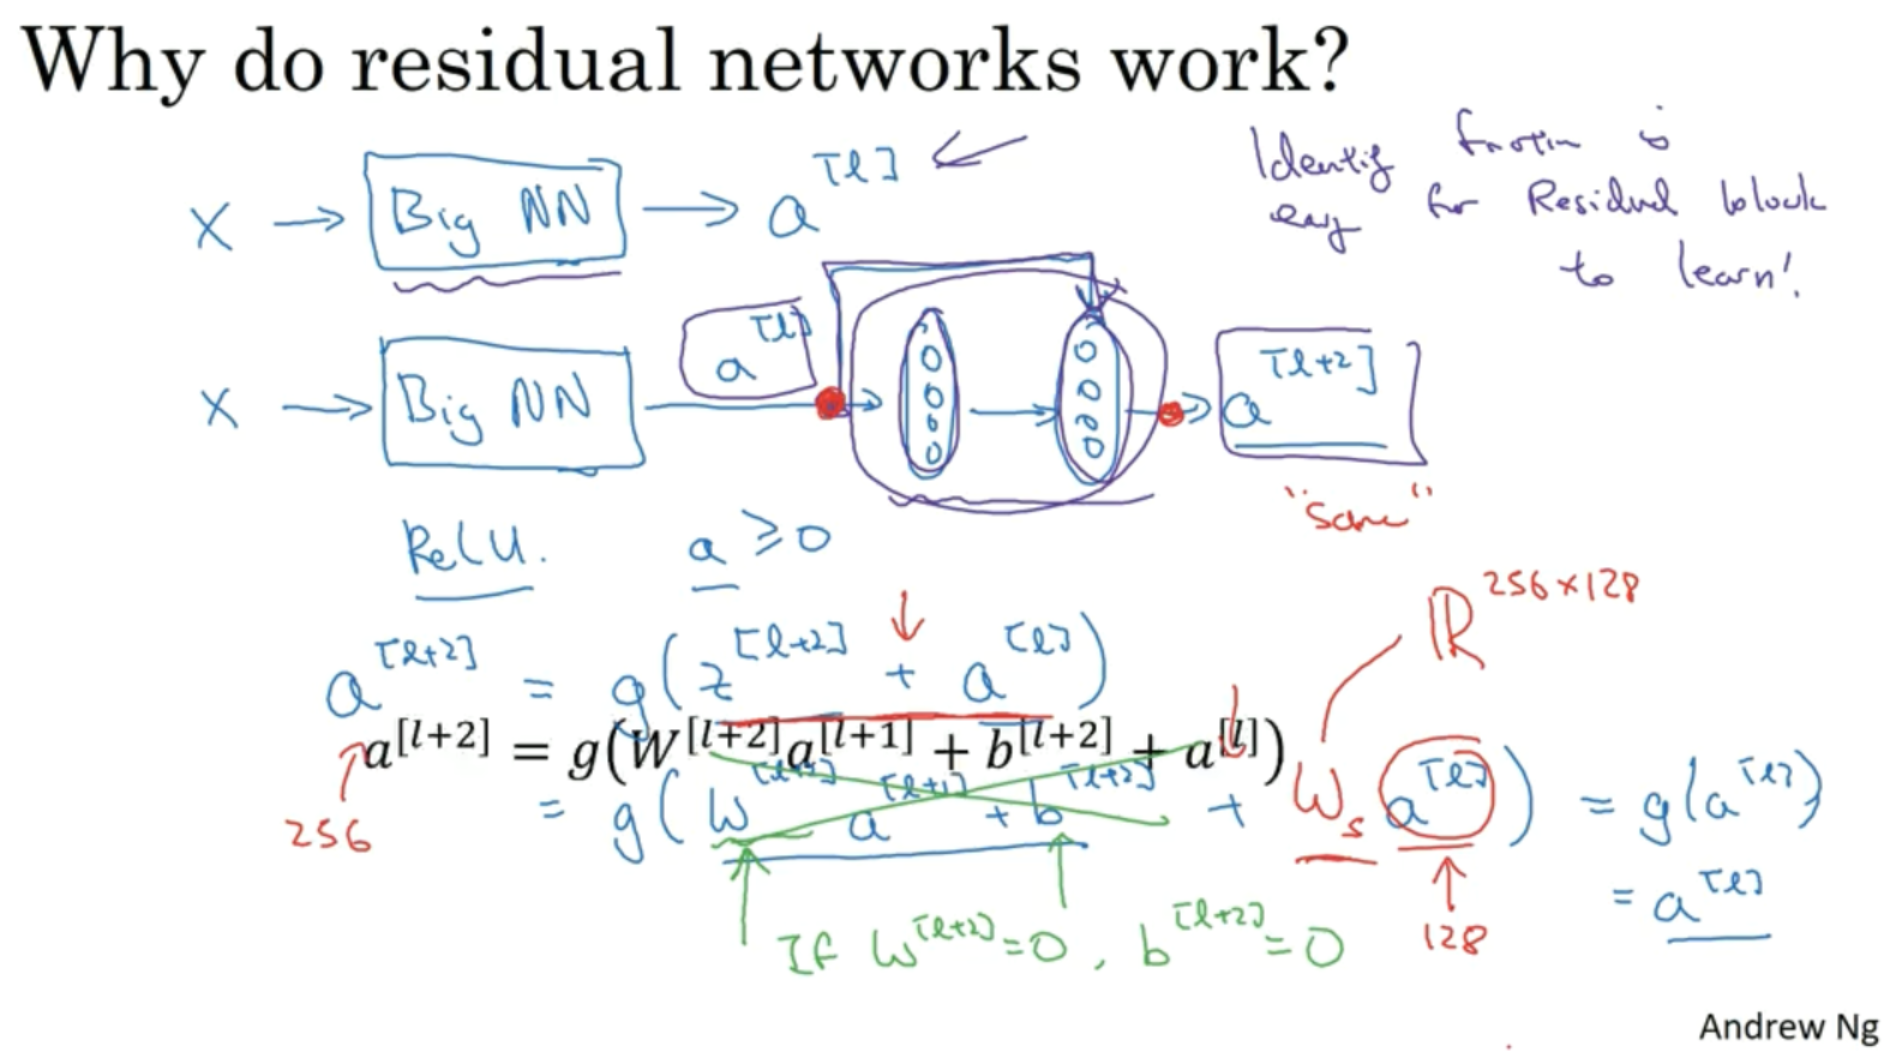 Why do residual networks work?
X → Big NN → a^[l]
Identity function is
easy for Residual block
to learn!
X → Big NN a^[l] → a^[l+2]
"same"
ReLU. a ≥ 0
ℝ^256×128
a^[l+2] = g(z^[l+2] + a^[l])
a^[l+2] = g(W^[l+2]a^[l+1] + b^[l+2] + a^[l])
256
= g(W^[l+2] a^[l+1] + b^[l+2] + W_s a^[l]) = g(a^[l])
= a^[l]
128
If W^[l+2] = 0, b^[l+2] = 0
Andrew Ng